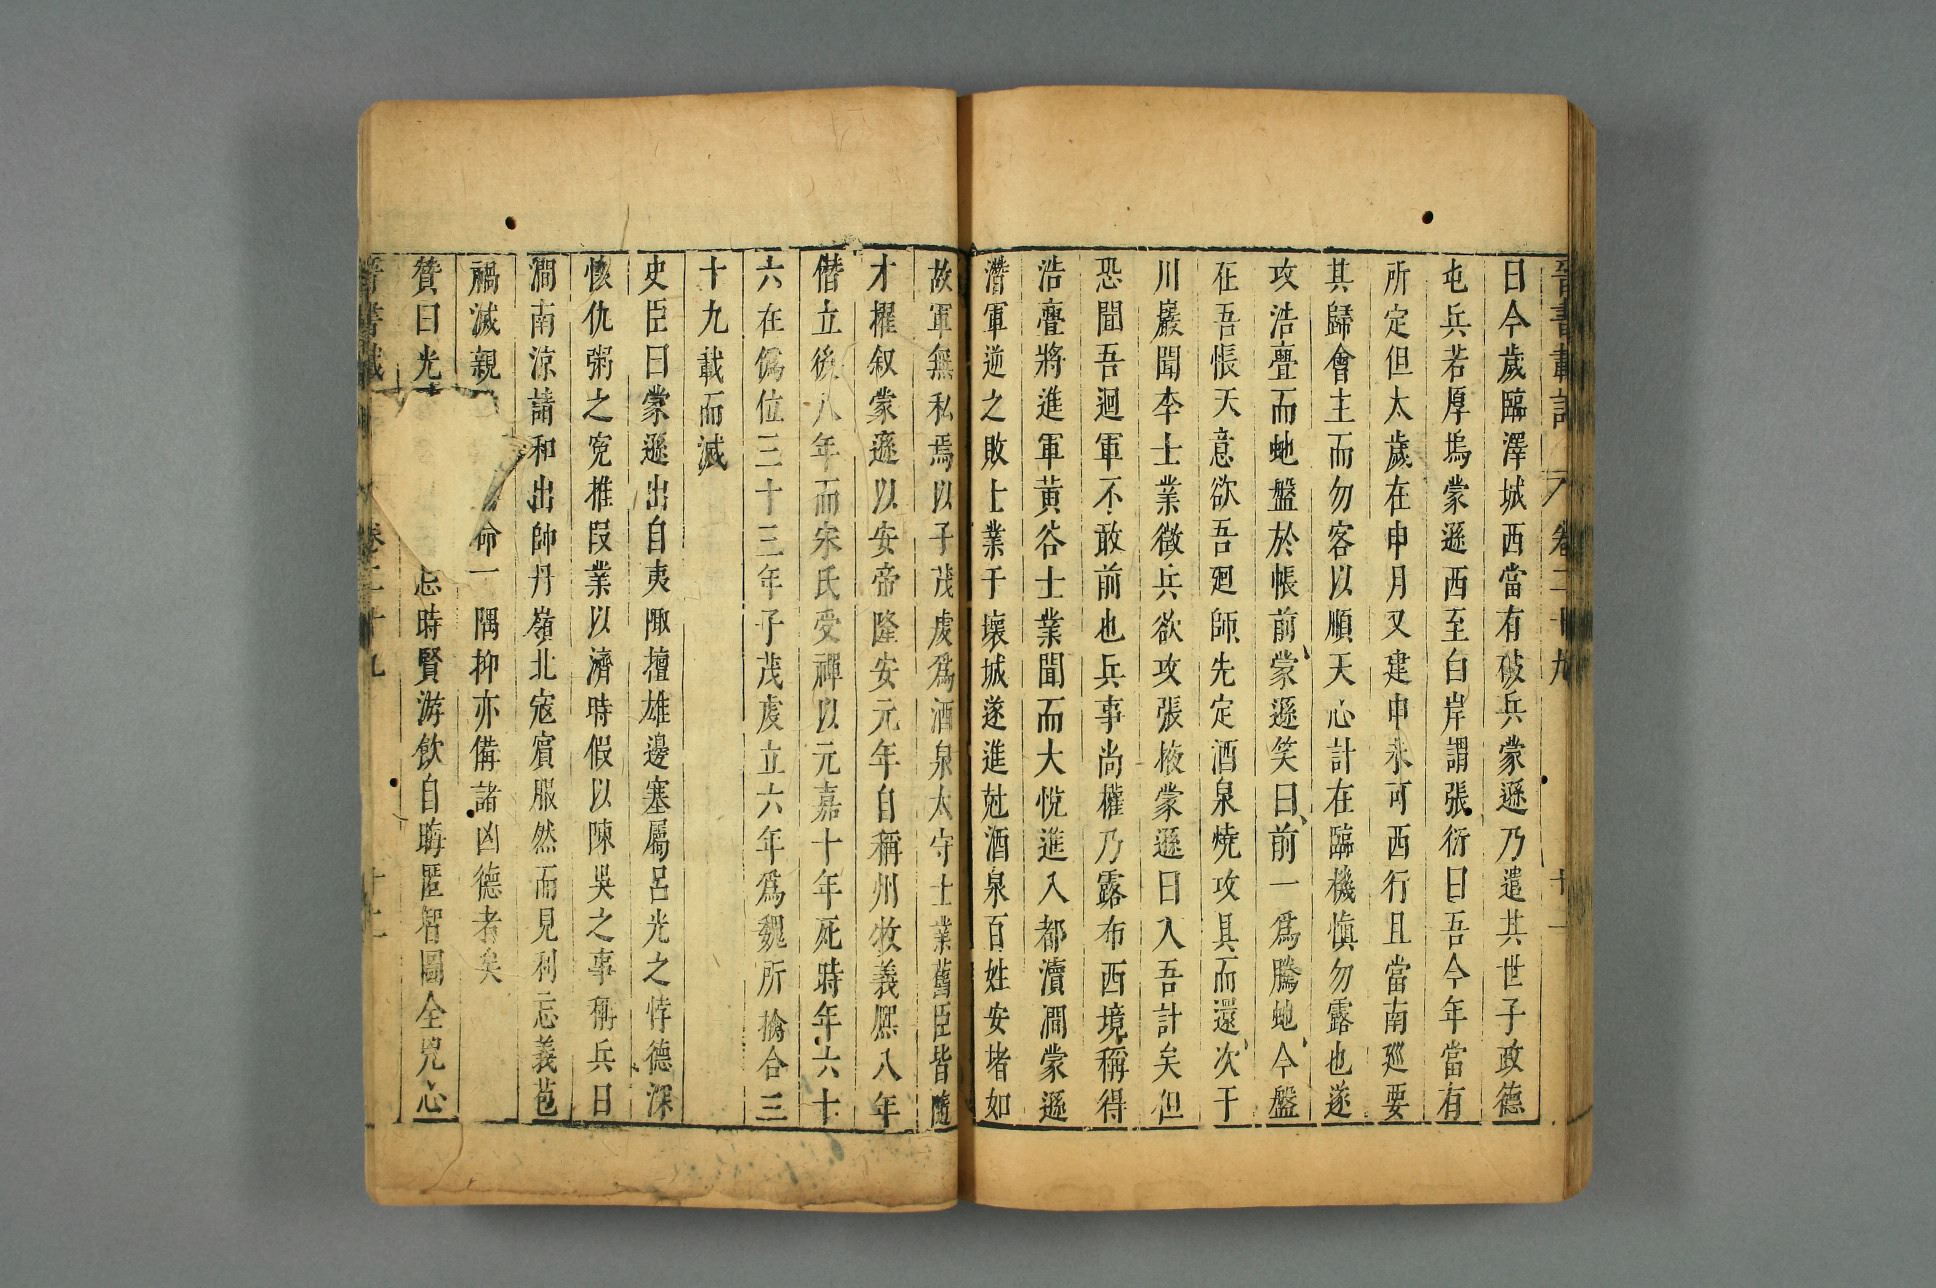 晉書載記 卷二十九 十一
日今歲臨澤城西當有破兵蒙遜乃遣其世子政德
屯兵若厚塢蒙遜西至白岸謂張衍曰吾今年當有
所定但太歲在申月又建申未可西行且當南廵要
其歸會主而勿客以順天心計在臨機慎勿露也遂
攻浩亹而虵盤於帳前蒙遜笑曰前一爲騰虵今盤
在吾帳天意欲吾廻師先定酒泉燒攻具而還次于
川巖聞李士業徵兵欲攻張掖蒙遜曰入吾計矣但
恐聞吾廻軍不敢前也兵事尚權乃露布西境稱得
浩亹將進軍黄谷士業聞而大悅進入都瀆澗蒙遜
潛軍逆之敗士業于壞城遂進尅酒泉百姓安堵如
故軍無私焉以子茂虔爲酒泉太守士業舊臣皆隨
才擢叙蒙遜以安帝隆安元年自稱州牧義熈八年
僭立後八年而宋氏受禪以元嘉十年死時年六十
六在僞位三十三年子茂虔立六年爲魏所擒合三
十九載而滅
史臣曰蒙遜出自夷陬擅雄邊塞屬呂光之悖德深
懷仇粥之寃推段業以濟時假以陳吳之事稱兵白
澗南涼請和出師丹嶺北寇賓服然而見利忘義苞
禍滅親命一隅抑亦備諸凶德者矣
贊曰光忘時賢游飲自晦匿智圖全兇心
晉書載 卷二十九 十二